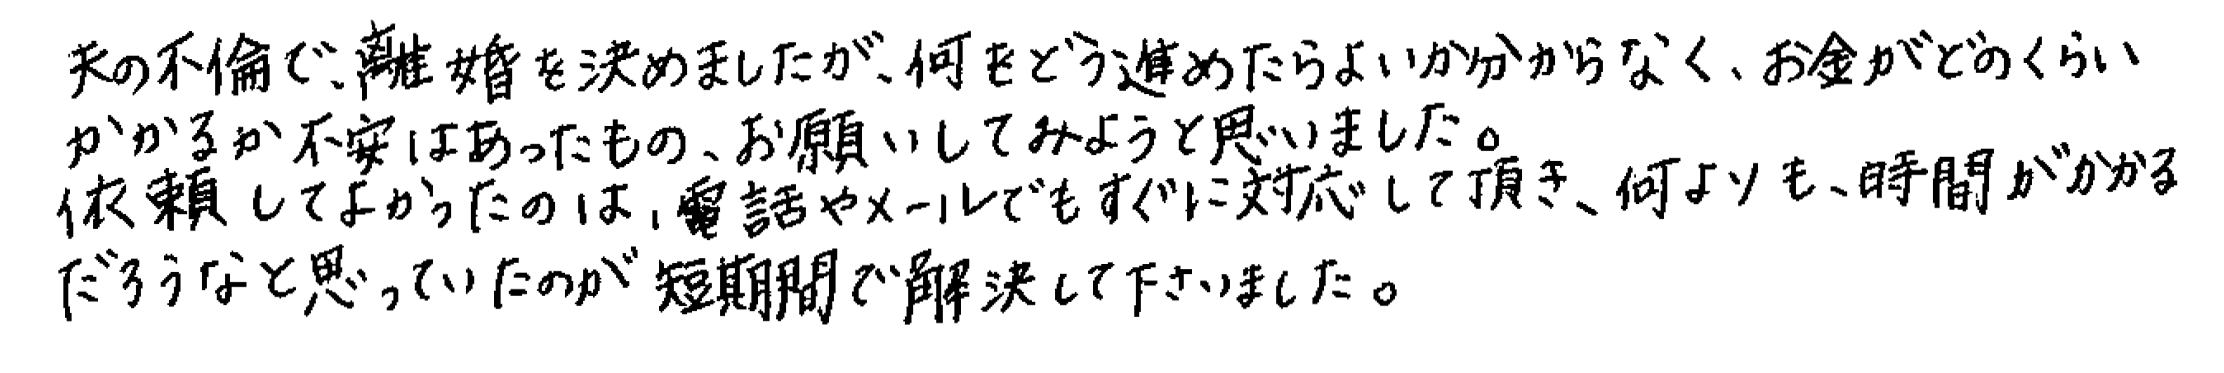 夫の不倫で、離婚を決めましたが、何をどう進めたらよいか分からなく、お金がどのくらい
かかるか不安はあったもの、お願いしてみようと思いました。
依頼してよかったのは、電話やメールでもすぐに対応して頂き、何よりも、時間がかかる
だろうなと思っていたのが短期間で解決して下さいました。